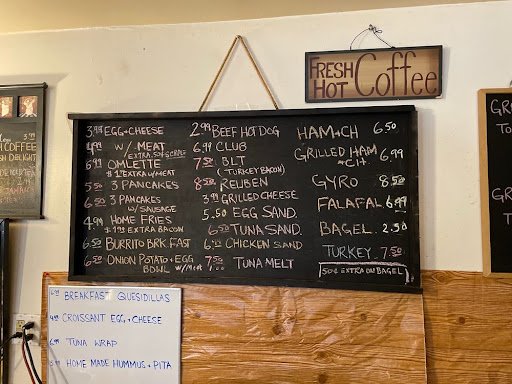 FRESH HOT Coffee
3.99 EGG + CHEESE
4.99 W/ MEAT
EXTRA 50¢ CHSE
6.99 OMLETTE
$1 EXTRA W/MEAT
3 PANCAKES
3 PANCAKES
W/ SAUSAGE
4.99 HOME FRIES
$1 EXTRA BACON
6.50 BURRITO BRKFAST
6.50 ONION POTATO + EGG
BOWL W/MEAT 1.00
2.99 BEEF HOT DOG
6.99 CLUB
7.50 BLT
(TURKEY BACON)
8.50 REUBEN
3.99 GRILLED CHEESE
5.50 EGG SAND.
6.50 TUNA SAND.
CHICKEN SAND
7.50 TUNA MELT
HAM + CH 6.50
GRILLED HAM 6.99
+ CH.
GYRO 8.50
FALAFAL 6.99
BAGEL 2.50
TURKEY 7.50
50¢ EXTRA ON BAGEL
BREAKFAST QUESIDILLAS
CROISSANT EGG + CHEESE
TUNA WRAP
HOME MADE HUMMUS + PITA
COFFEE
DELIGHT